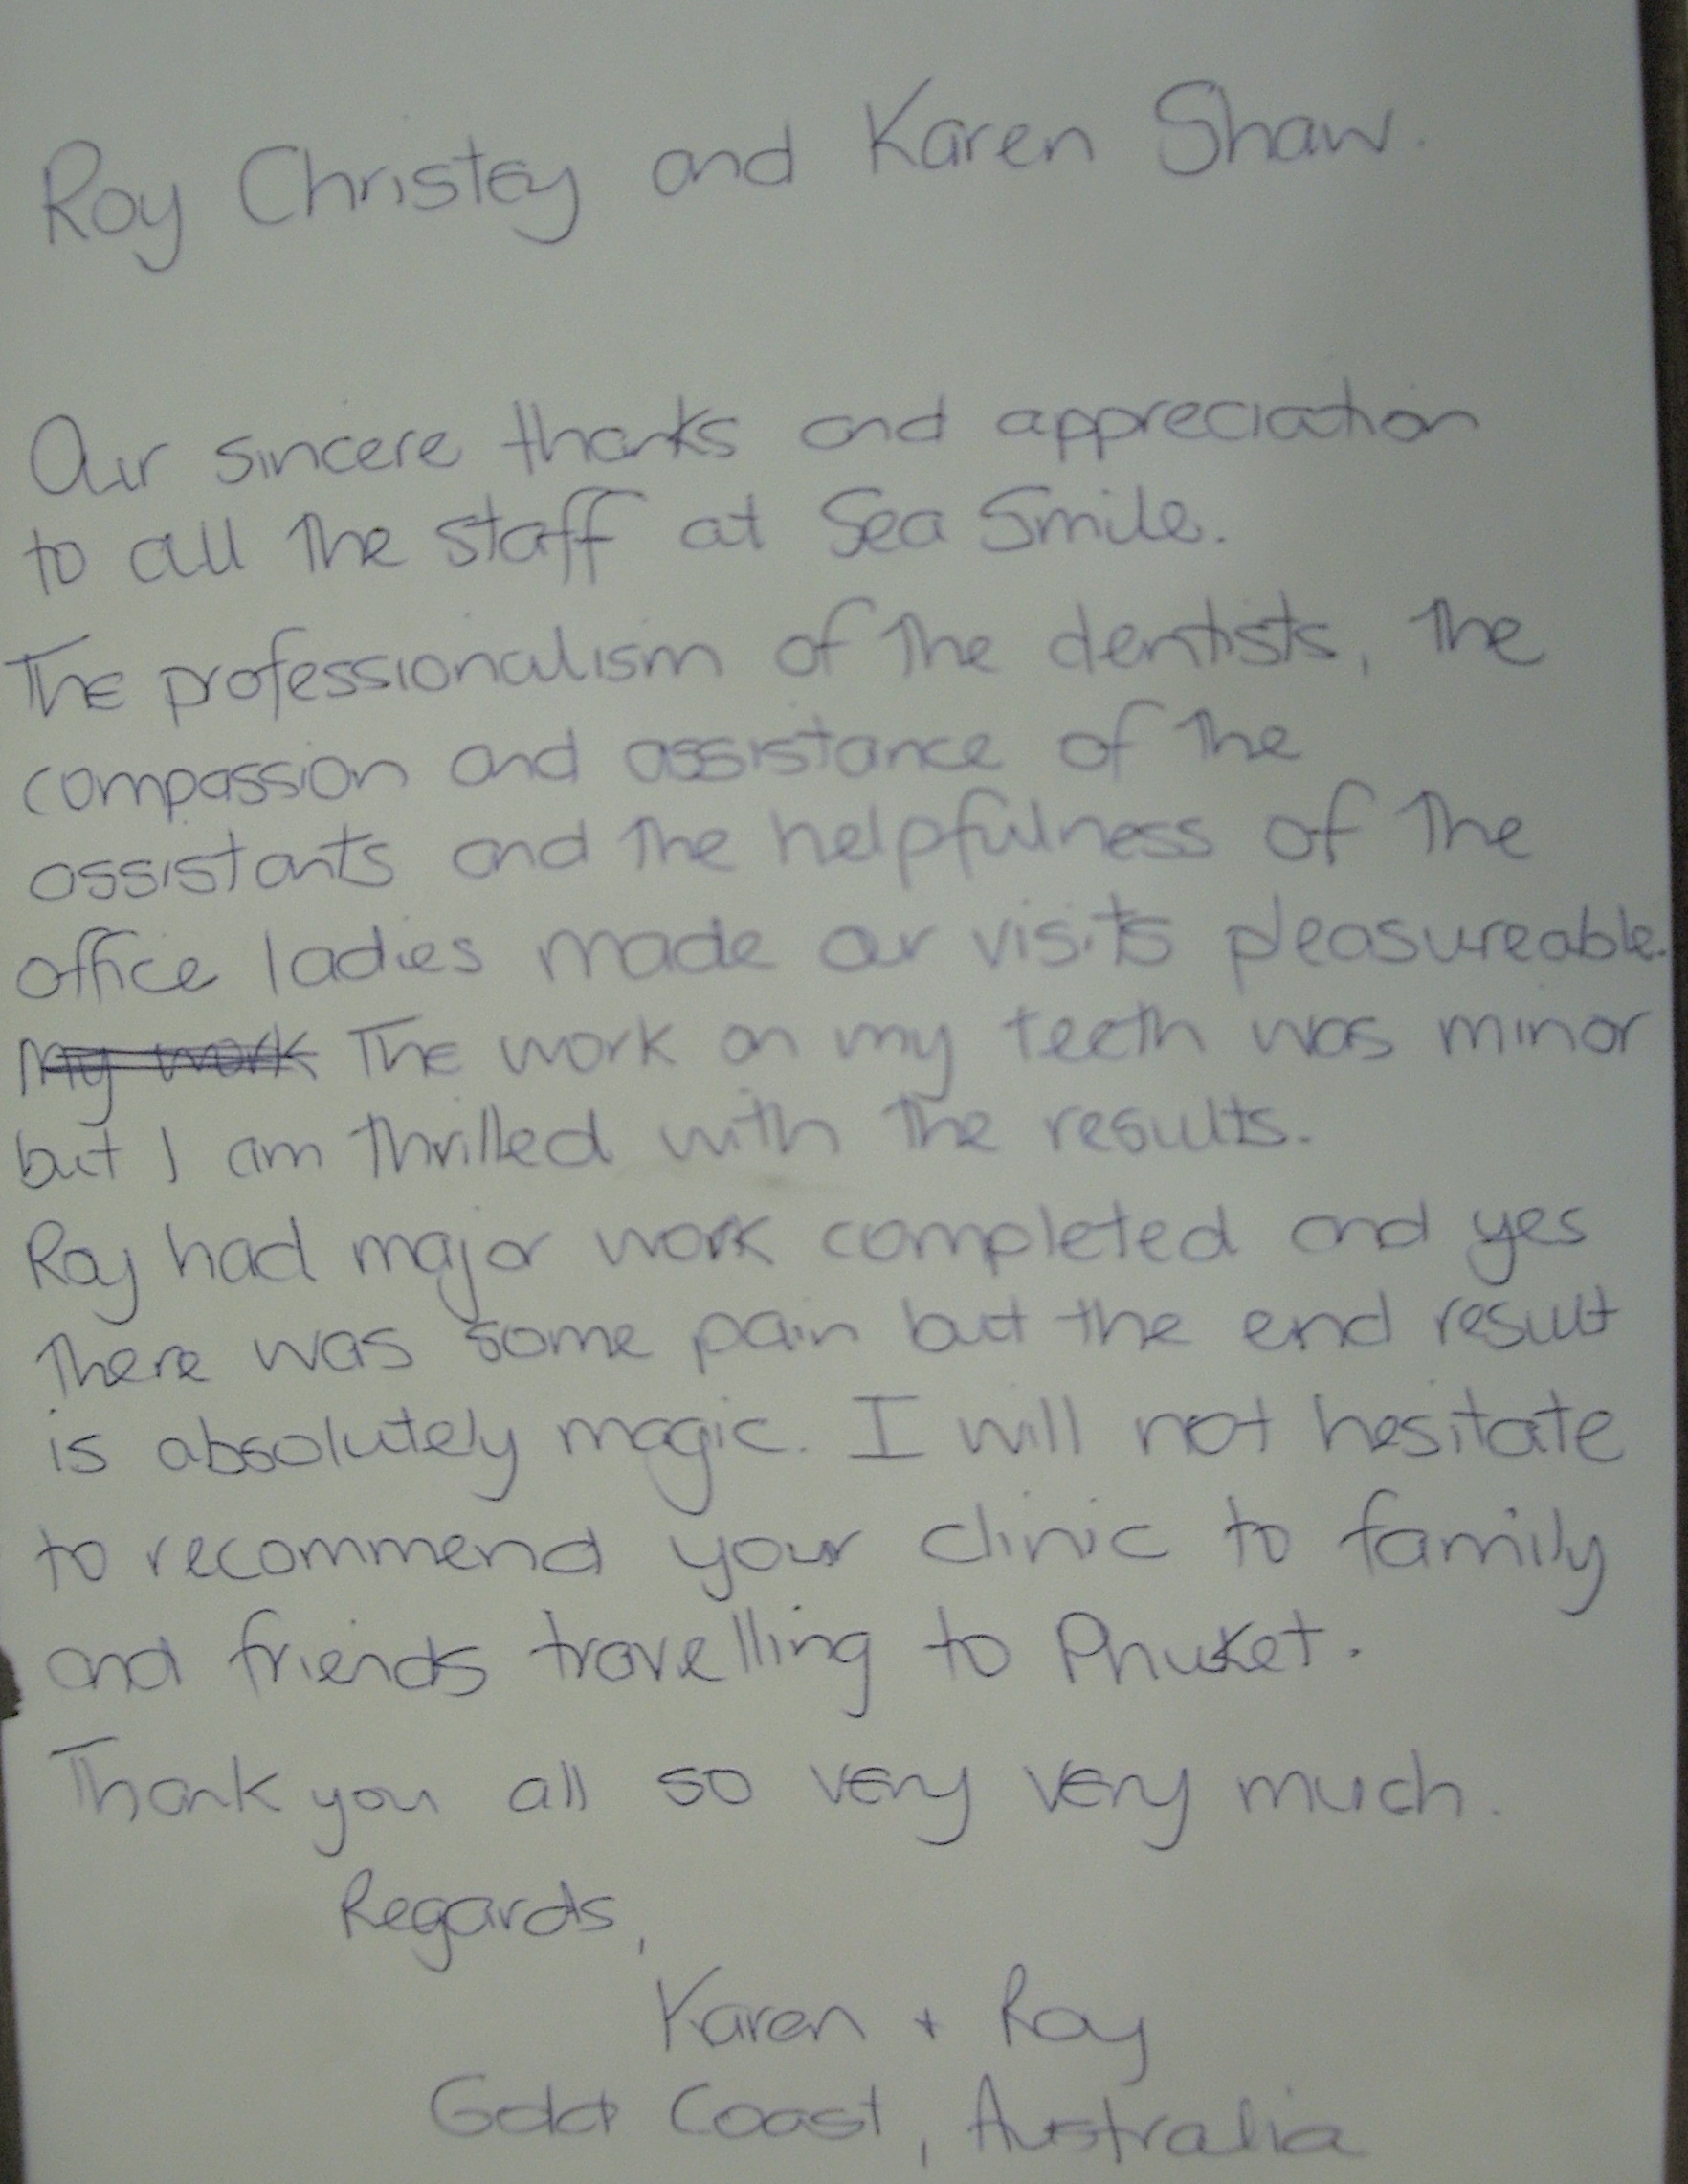 Roy Christey and Karen Shaw.
Our sincere thanks and appreciation
to all the staff at Sea Smile.
The professionalism of the dentists, the
compassion and assistance of the
assistants and the helpfulness of the
office ladies made our visits pleasureable.
My work The work on my teeth was minor
but I am thrilled with the results.
Roy had major work completed and yes
there was some pain but the end result
is absolutely magic. I will not hesitate
to recommend your clinic to family
and friends travelling to Phuket.
Thank you all so very very much.
Regards,
Karen + Roy
Gold Coast, Australia